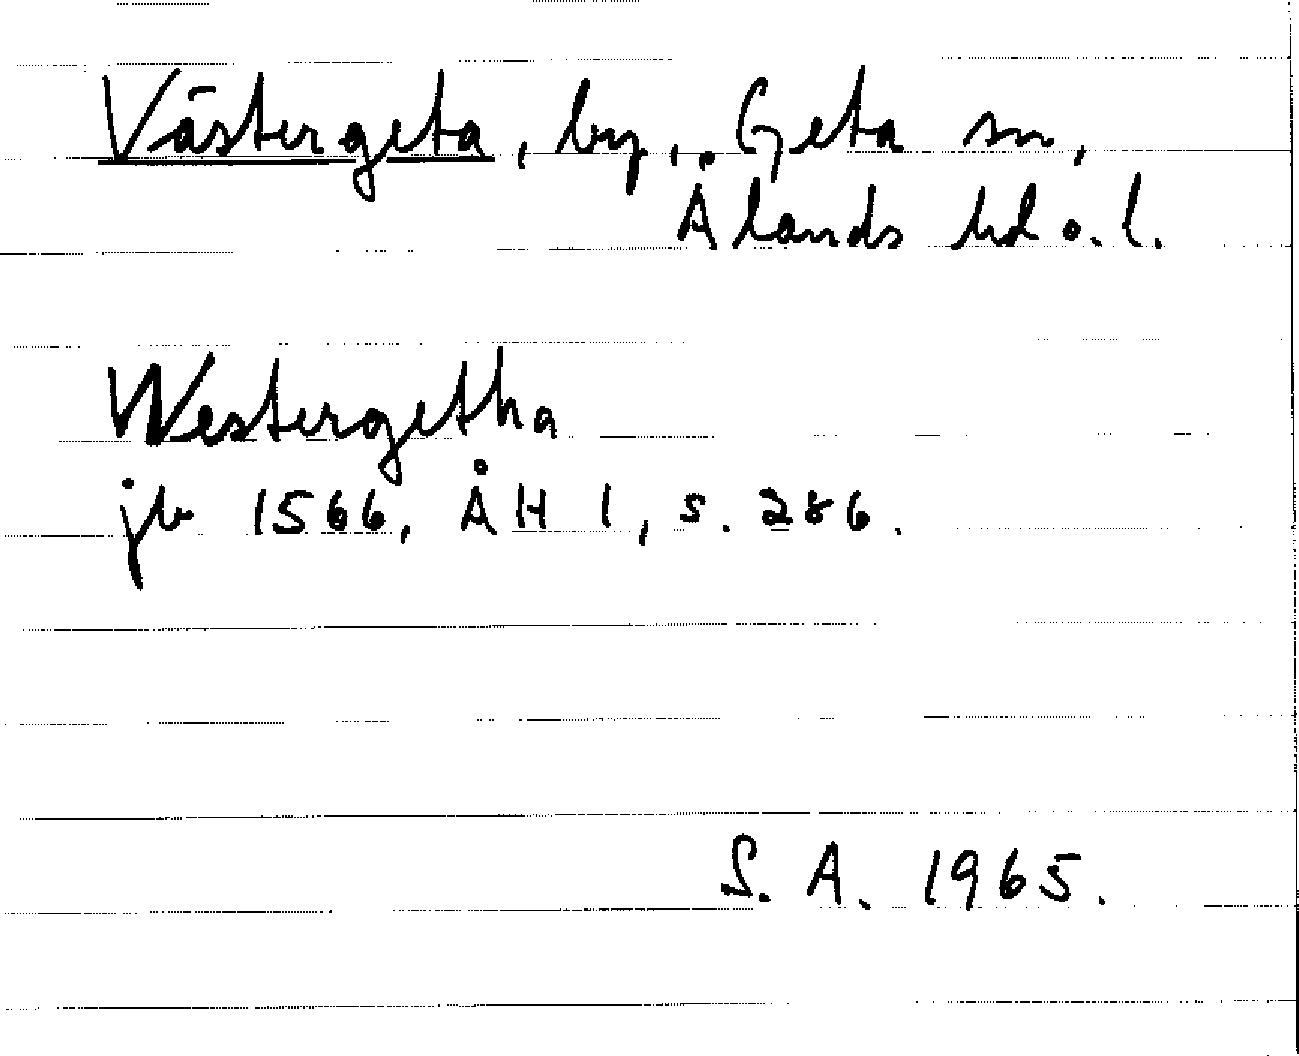 Västergeta, by, Geta sn,
Ålands hd o. l.
Westergetha
jb 1566, ÅH 1, s. 286.
S. A. 1965.